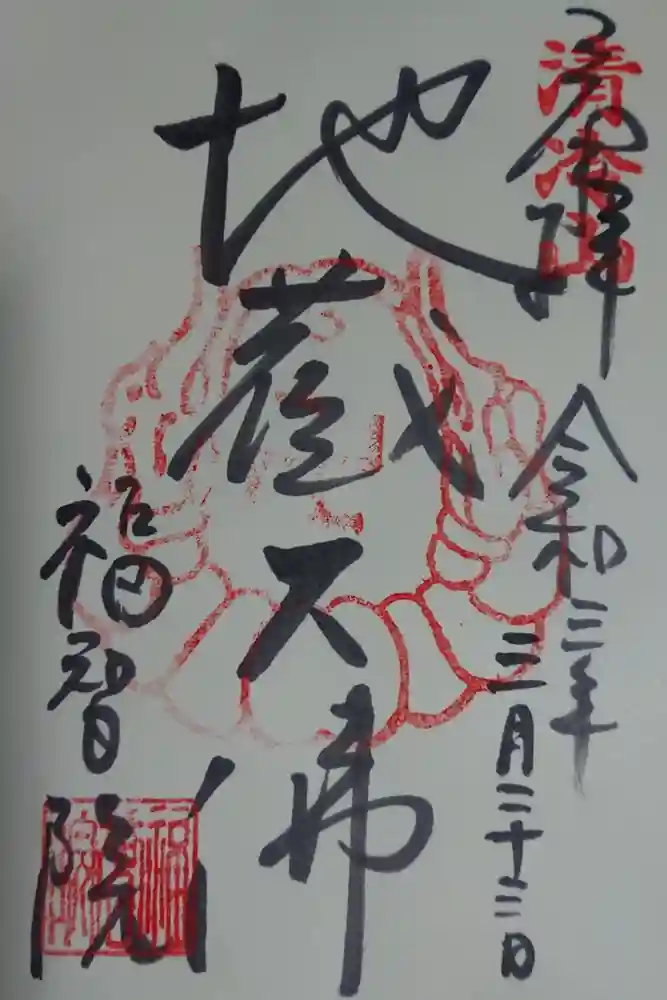 奉拝
清冷山
令和三年
三月二十二日
地蔵大佛
福智院